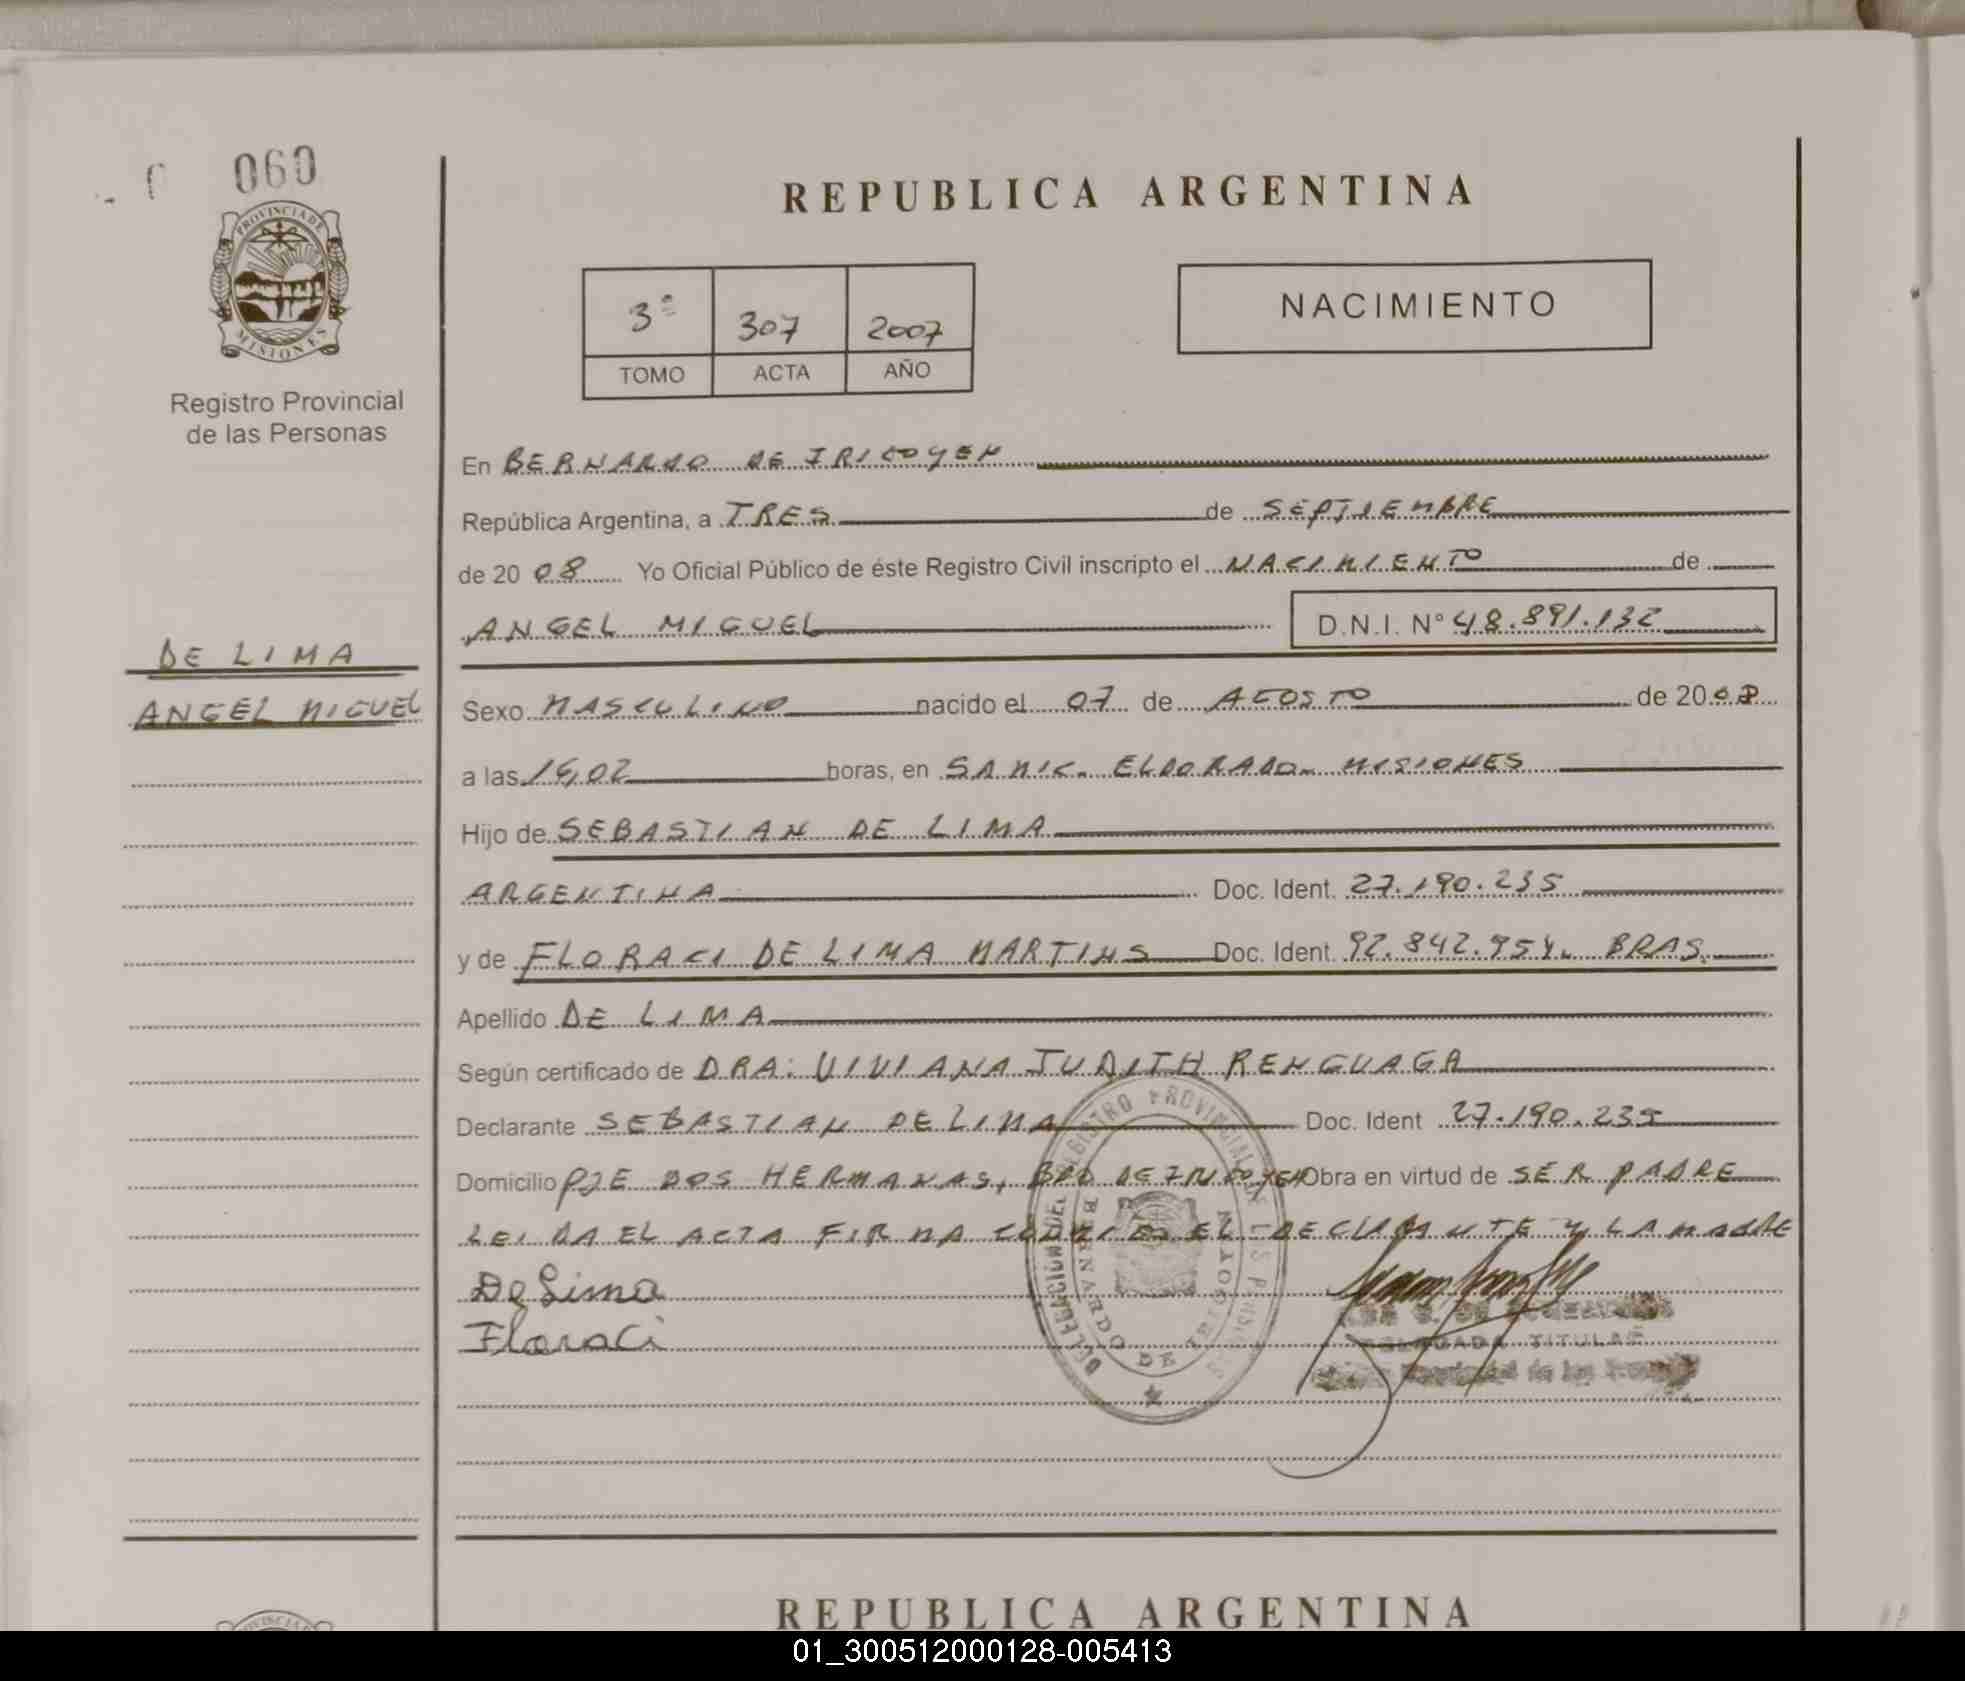 060
PROVINCIA DE
MISIONES
Registro Provincial
de las Personas
DE LIMA
ANGEL MIGUEL
REPUBLICA ARGENTINA
3º 307 2007
TOMO ACTA AÑO
NACIMIENTO
En BERNARDO DE IRIGOYEN
República Argentina, a TRES de SEPTIEMBRE
de 20 08 Yo Oficial Público de éste Registro Civil inscripto el NACIMIENTO de
ANGEL MIGUEL D.N.I. Nº 48.891.132
Sexo MASCULINO nacido el 07 de AGOSTO de 20 08
a las 16,02 horas, en SAMIC. ELDORADO. MISIONES
Hijo de SEBASTIAN DE LIMA
ARGENTINA Doc. Ident. 27.190.235
y de FLORACI DE LIMA MARTINS Doc. Ident. 92.842.954. BRAS.
Apellido DE LIMA
Según certificado de DRA: VIVIANA JUDITH RENGUAGA
Declarante SEBASTIAN DE LIMA Doc. Ident 27.190.235
Domicilio PJE DOS HERMANAS, BDO DE IRIGOYEN Obra en virtud de SER PADRE
LEIDA EL ACTA FIRMA CONMIGO EL DECLARANTE Y LA MADRE
De Lima
Floraci
DELEGACION DEL REGISTRO PROVINCIAL DE LAS PERSONAS
BERNARDO DE IRIGOYEN
DELEGADA TITULAR
Provincial de las
REPUBLICA ARGENTINA
01_300512000128-005413